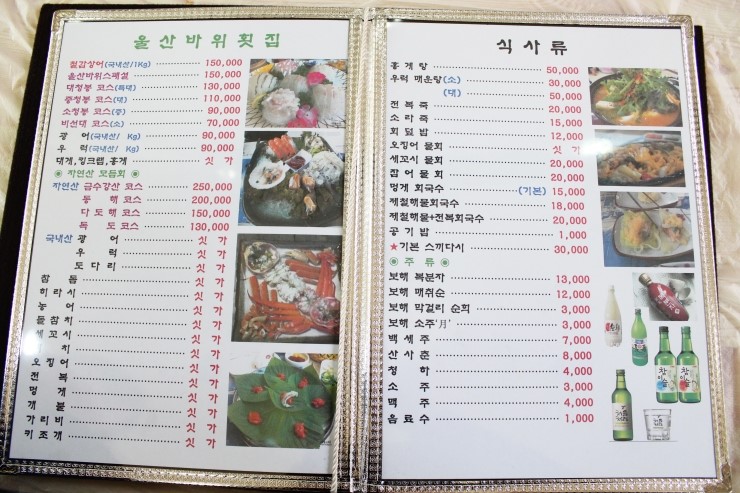 울산바위횟집
철갑상어(국내산/1Kg) 150,000
울산바위스페셜 150,000
대청봉 코스(특대) 130,000
중청봉 코스(대) 110,000
소청봉 코스(중) 90,000
비선대 코스(소) 70,000
광 어(국내산/ Kg) 90,000
우 럭(국내산/ Kg) 90,000
대게,킹크랩,홍게 싯 가
◉ 자연산 모듬회 ◉
자연산 금수강산 코스 250,000
동 해 코스 200,000
다 도 해 코스 150,000
독 도 코스 130,000
국내산 광 어 싯 가
우 럭 싯 가
도 다 리 싯 가
참 돔 싯 가
히 라 시 싯 가
농 어 싯 가
줄 참 치 싯 가
세 꼬 시 싯 가
치 싯 가
오 징 어 싯 가
전 복 싯 가
멍 게 싯 가
개 불 싯 가
가 리 비 싯 가
키 조 개 싯 가
식 사 류
홍 게 탕 50,000
우럭 매운탕(소) 30,000
(대) 50,000
전 복 죽 20,000
소 라 죽 15,000
회 덮 밥 12,000
오징어 물회 싯 가
세꼬시 물회 20,000
잡어 물회 20,000
멍게 회국수 (기본) 15,000
제철해물회국수 18,000
제철해물+전복회국수 20,000
공 기 밥 1,000
★기본 스끼다시 30,000
◉ 주 류 ◉
보해 복분자 13,000
보해 매취순 12,000
보해 막걸리 순희 3,000
보해 소주'月' 3,000
백 세 주 7,000
산 사 춘 8,000
청 하 4,000
소 주 3,000
맥 주 4,000
음 료 수 1,000